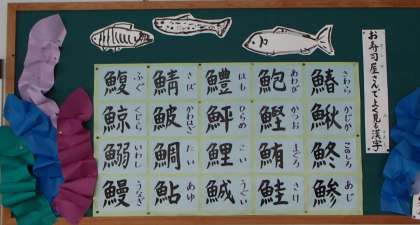 お寿司屋さんでよく見る漢字
鰆 さわら
鰍 かじか
鮗 このしろ
鯵 あじ
鮑 あわび
鰹 かつお
鮪 まぐろ
鮭 さけ
鱧 はも
鮃 ひらめ
鯉 こい
鯎 うぐい
鯖 さば
鮍 かわはぎ
鯛 たい
鮎 あゆ
鰒 ふぐ
鯨 くじら
鰯 いわし
鰻 うなぎ